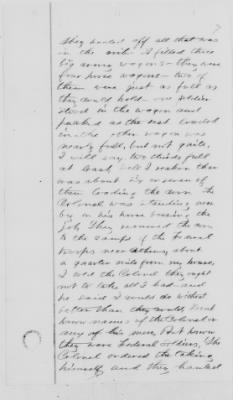 7
they hauled off all that was
in the crib - & filled three
big army wagons - they were
four horse wagons - two of
them were just as full as
they could hold - one soldier
stood in the wagon and
packed as the rest loaded
in - the other wagon was
nearly full, but not quite,
I will say two thirds full
at least,
was about by
them loading the corn. The
Colonel was standing near
by on his horse bossing the
job. They carried the corn
to the camps of the Federal
troops near about
a quarter mile from my house,
I told the Colonel they ought
not to take all I had - and
he said I could do without
better than they could, I dont
know names of the Colonel or
any of his men, But know
they were Federal soldiers, The
Colonel ordered the taking
himself, and they hauled